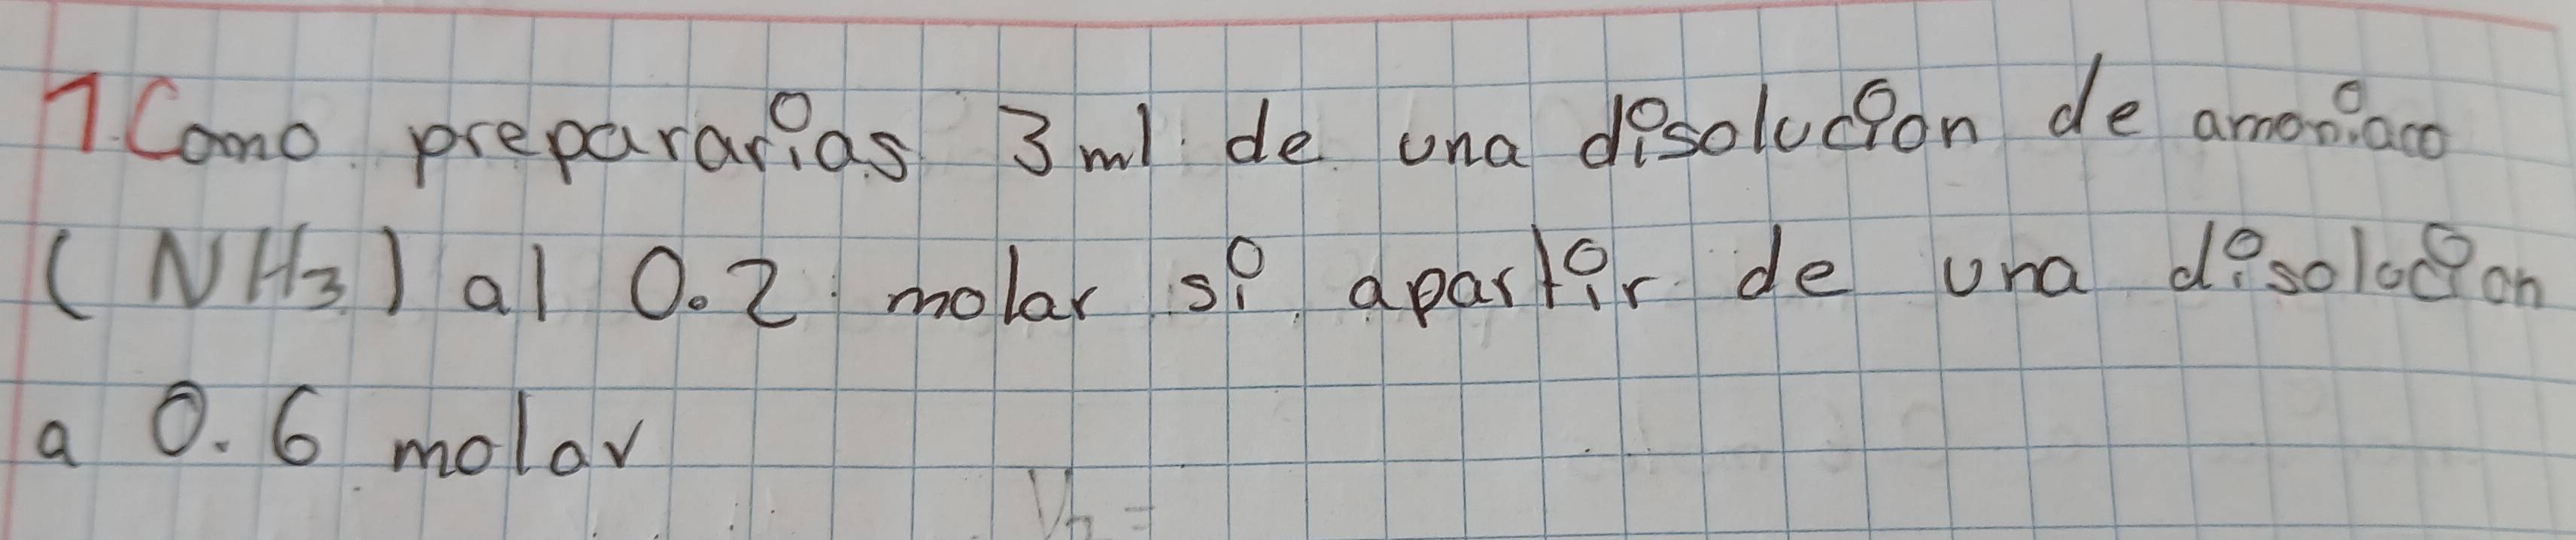 1. Como prepararias 3 ml de una disolucion de amoniaco
(NH3) al 0.2 molar si apartir de una disolucion
a 0.6 molar